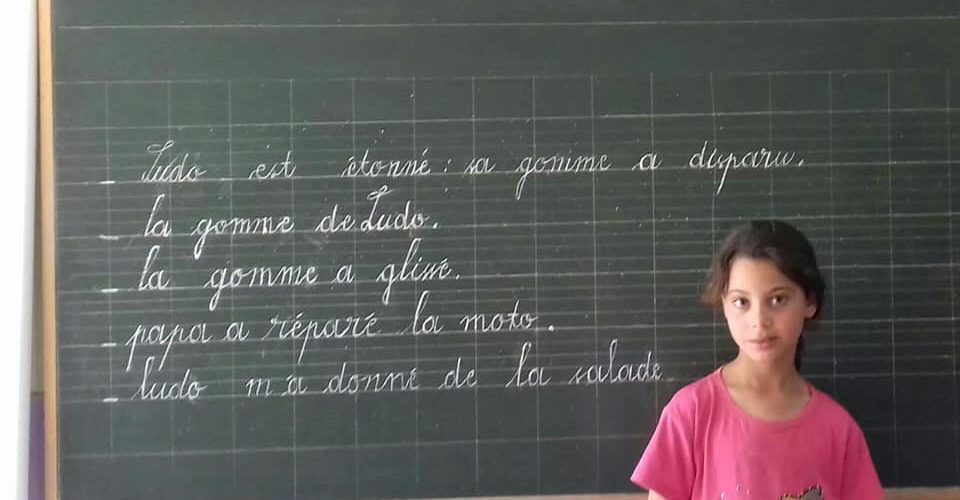 _ Ludo est étonné : sa gomme a disparu.
_ la gomme de Ludo.
_ la gomme a glissé.
_ papa a réparé la moto.
_ ludo m'a donné de la salade